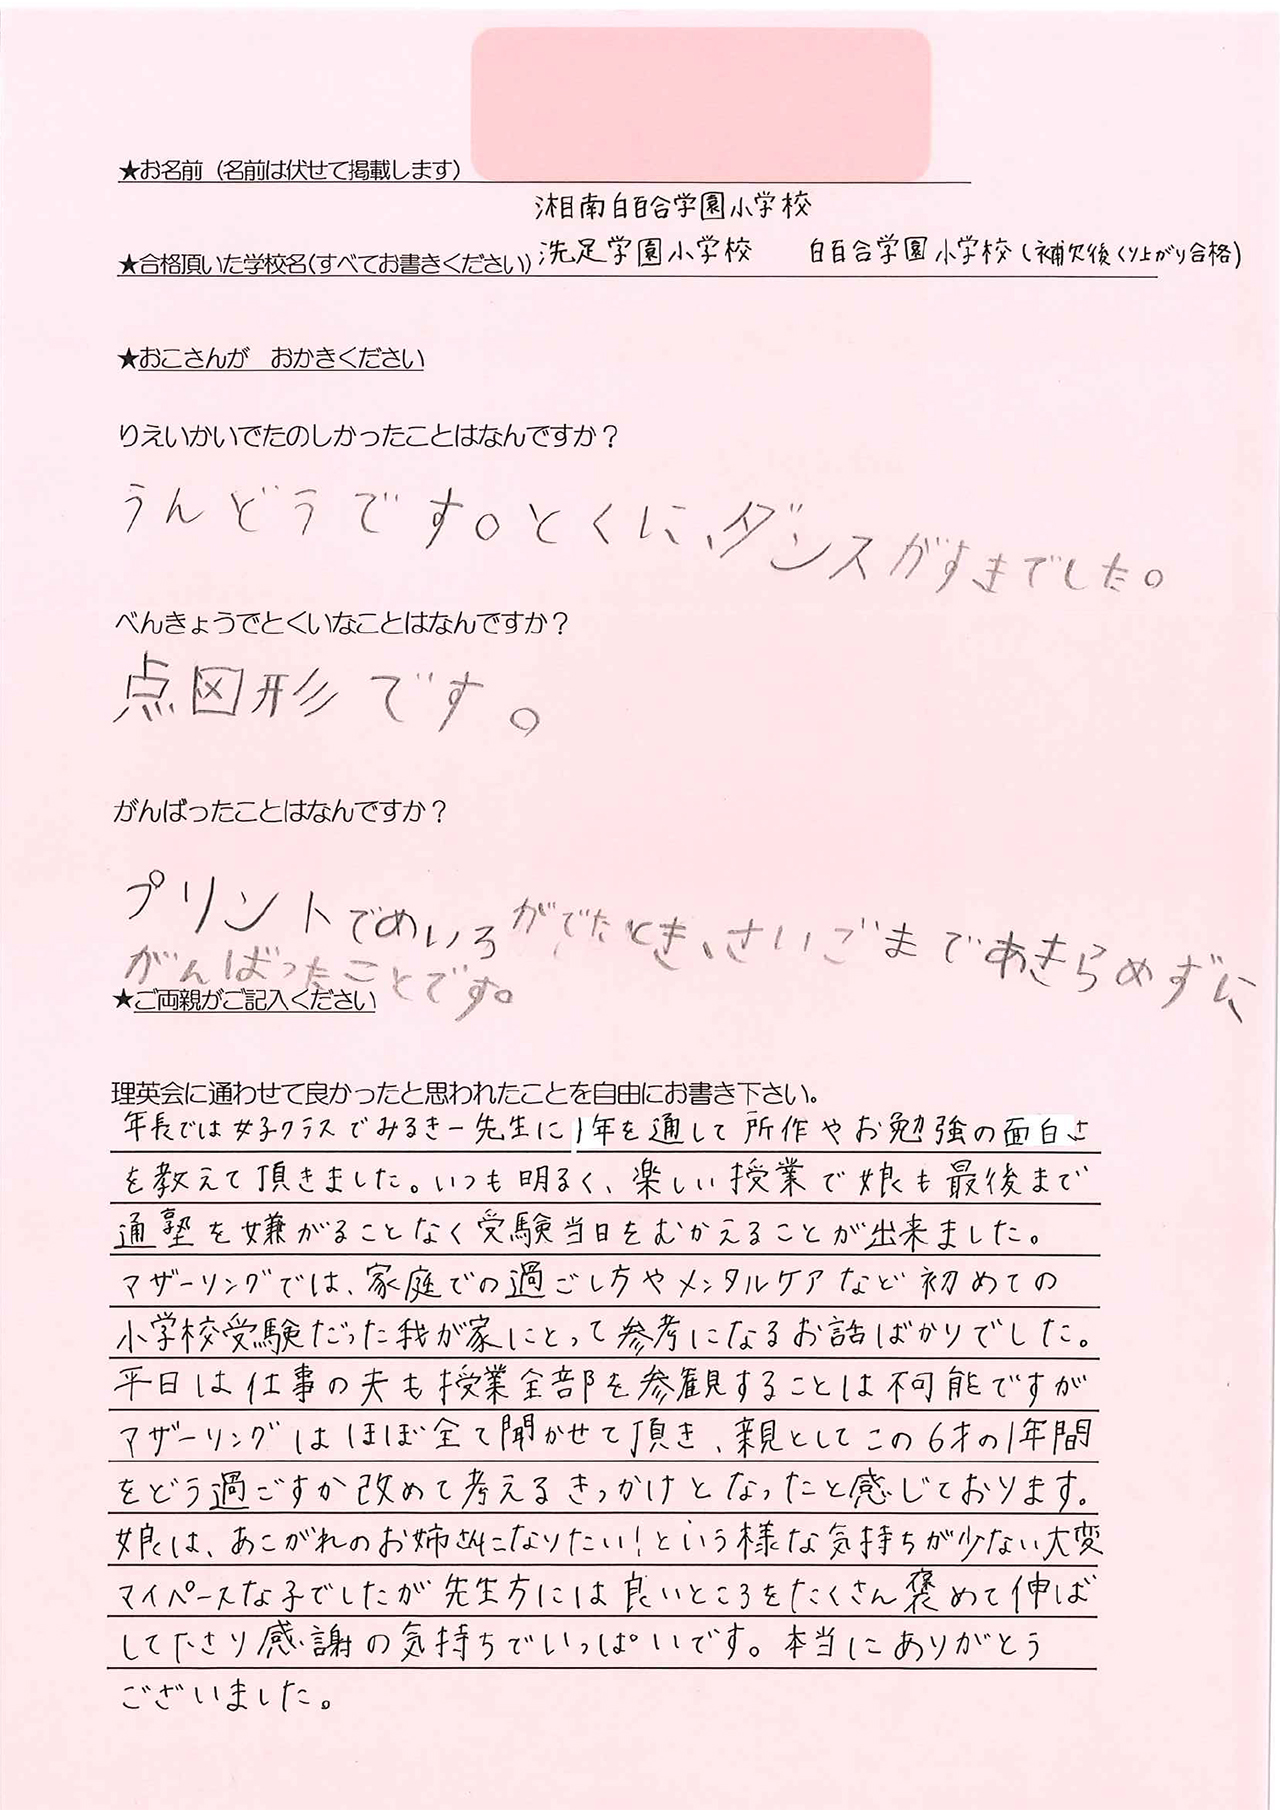 ★お名前（名前は伏せて掲載します）
湘南白百合学園小学校
★合格頂いた学校名(すべてお書きください) 洗足学園小学校　白百合学園小学校(補欠後くり上がり合格)
★おこさんが　おかきください
りえいかいでたのしかったことはなんですか？
うんどうです。とくに、ダンスがすきでした。
べんきょうでとくいなことはなんですか？
点図形です。
がんばったことはなんですか？
プリントでめいろがでたとき、さいごまであきらめずに
がんばったことです。
★ご両親がご記入ください
理英会に通わせて良かったと思われたことを自由にお書き下さい。
年長では女子クラスでみるきー先生に1年を通して所作やお勉強の面白さ
を教えて頂きました。いつも明るく、楽しい授業で娘も最後まで
通塾を嫌がることなく受験当日をむかえることが出来ました。
マザーリングでは、家庭での過ごし方やメンタルケアなど初めての
小学校受験だった我が家にとって参考になるお話ばかりでした。
平日は仕事の夫も授業全部を参観することは不可能ですが
マザーリングはほぼ全て聞かせて頂き、親としてこの6才の1年間
をどう過ごすか改めて考えるきっかけとなったと感じております。
娘は、あこがれのお姉さんになりたい!という様な気持ちが少ない大変
マイペースな子でしたが先生方には良いところをたくさん褒めて伸ば
して下さり感謝の気持ちでいっぱいです。本当にありがとう
ございました。